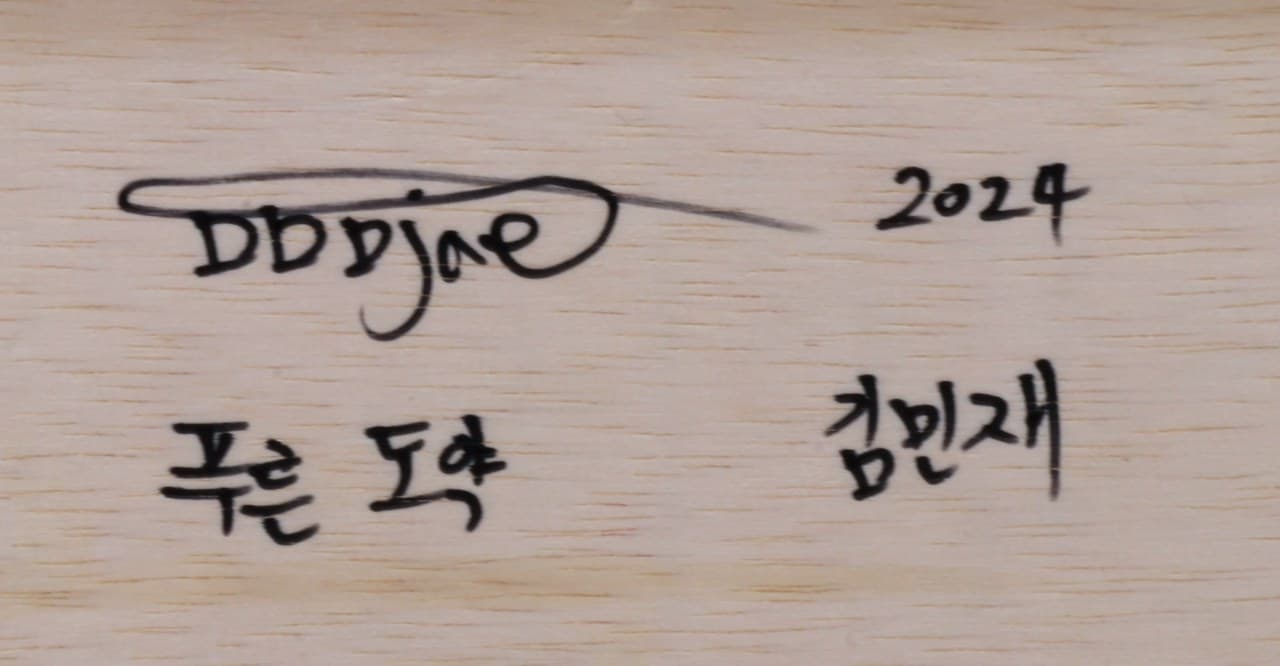 DDDjae 2024
푸른 도약 김민재